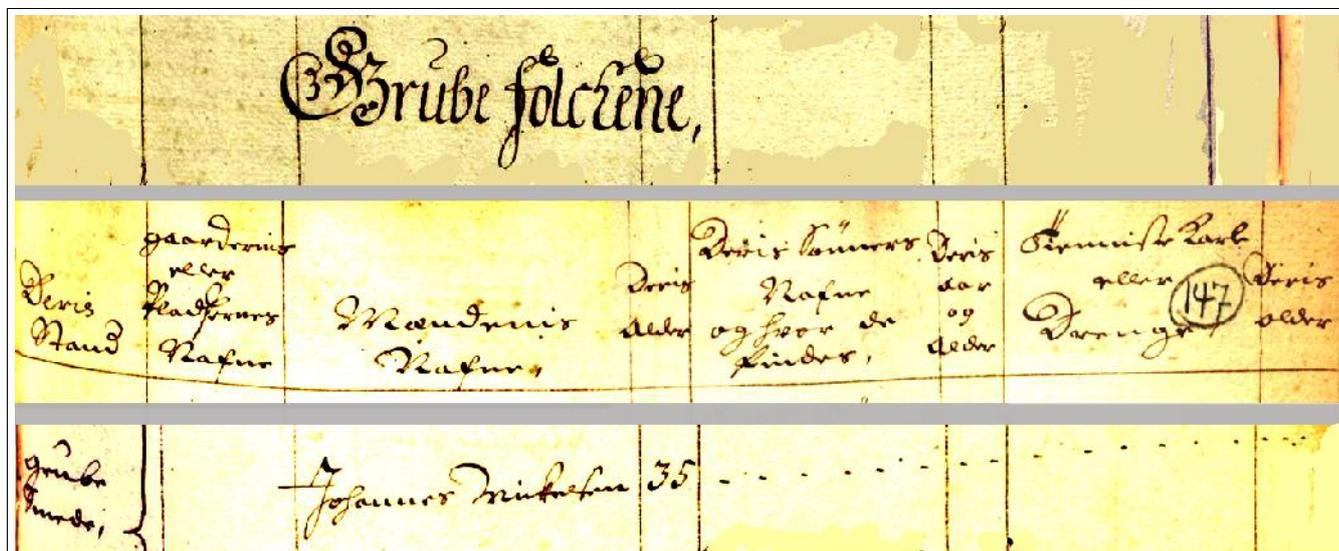 Grube folckene,
Deris
Stand
gaardernis
eller
Pladsernes
Nafne
Mændenis
Nafne.
Deris
Alder
Deris Sönners
Nafne
og hvor de
findes,
Deris
aar
og
Alder
Tienniste Karle
eller
Drenge
147
Deris
older
grube
Smede,
Johannes Mickelsen 35